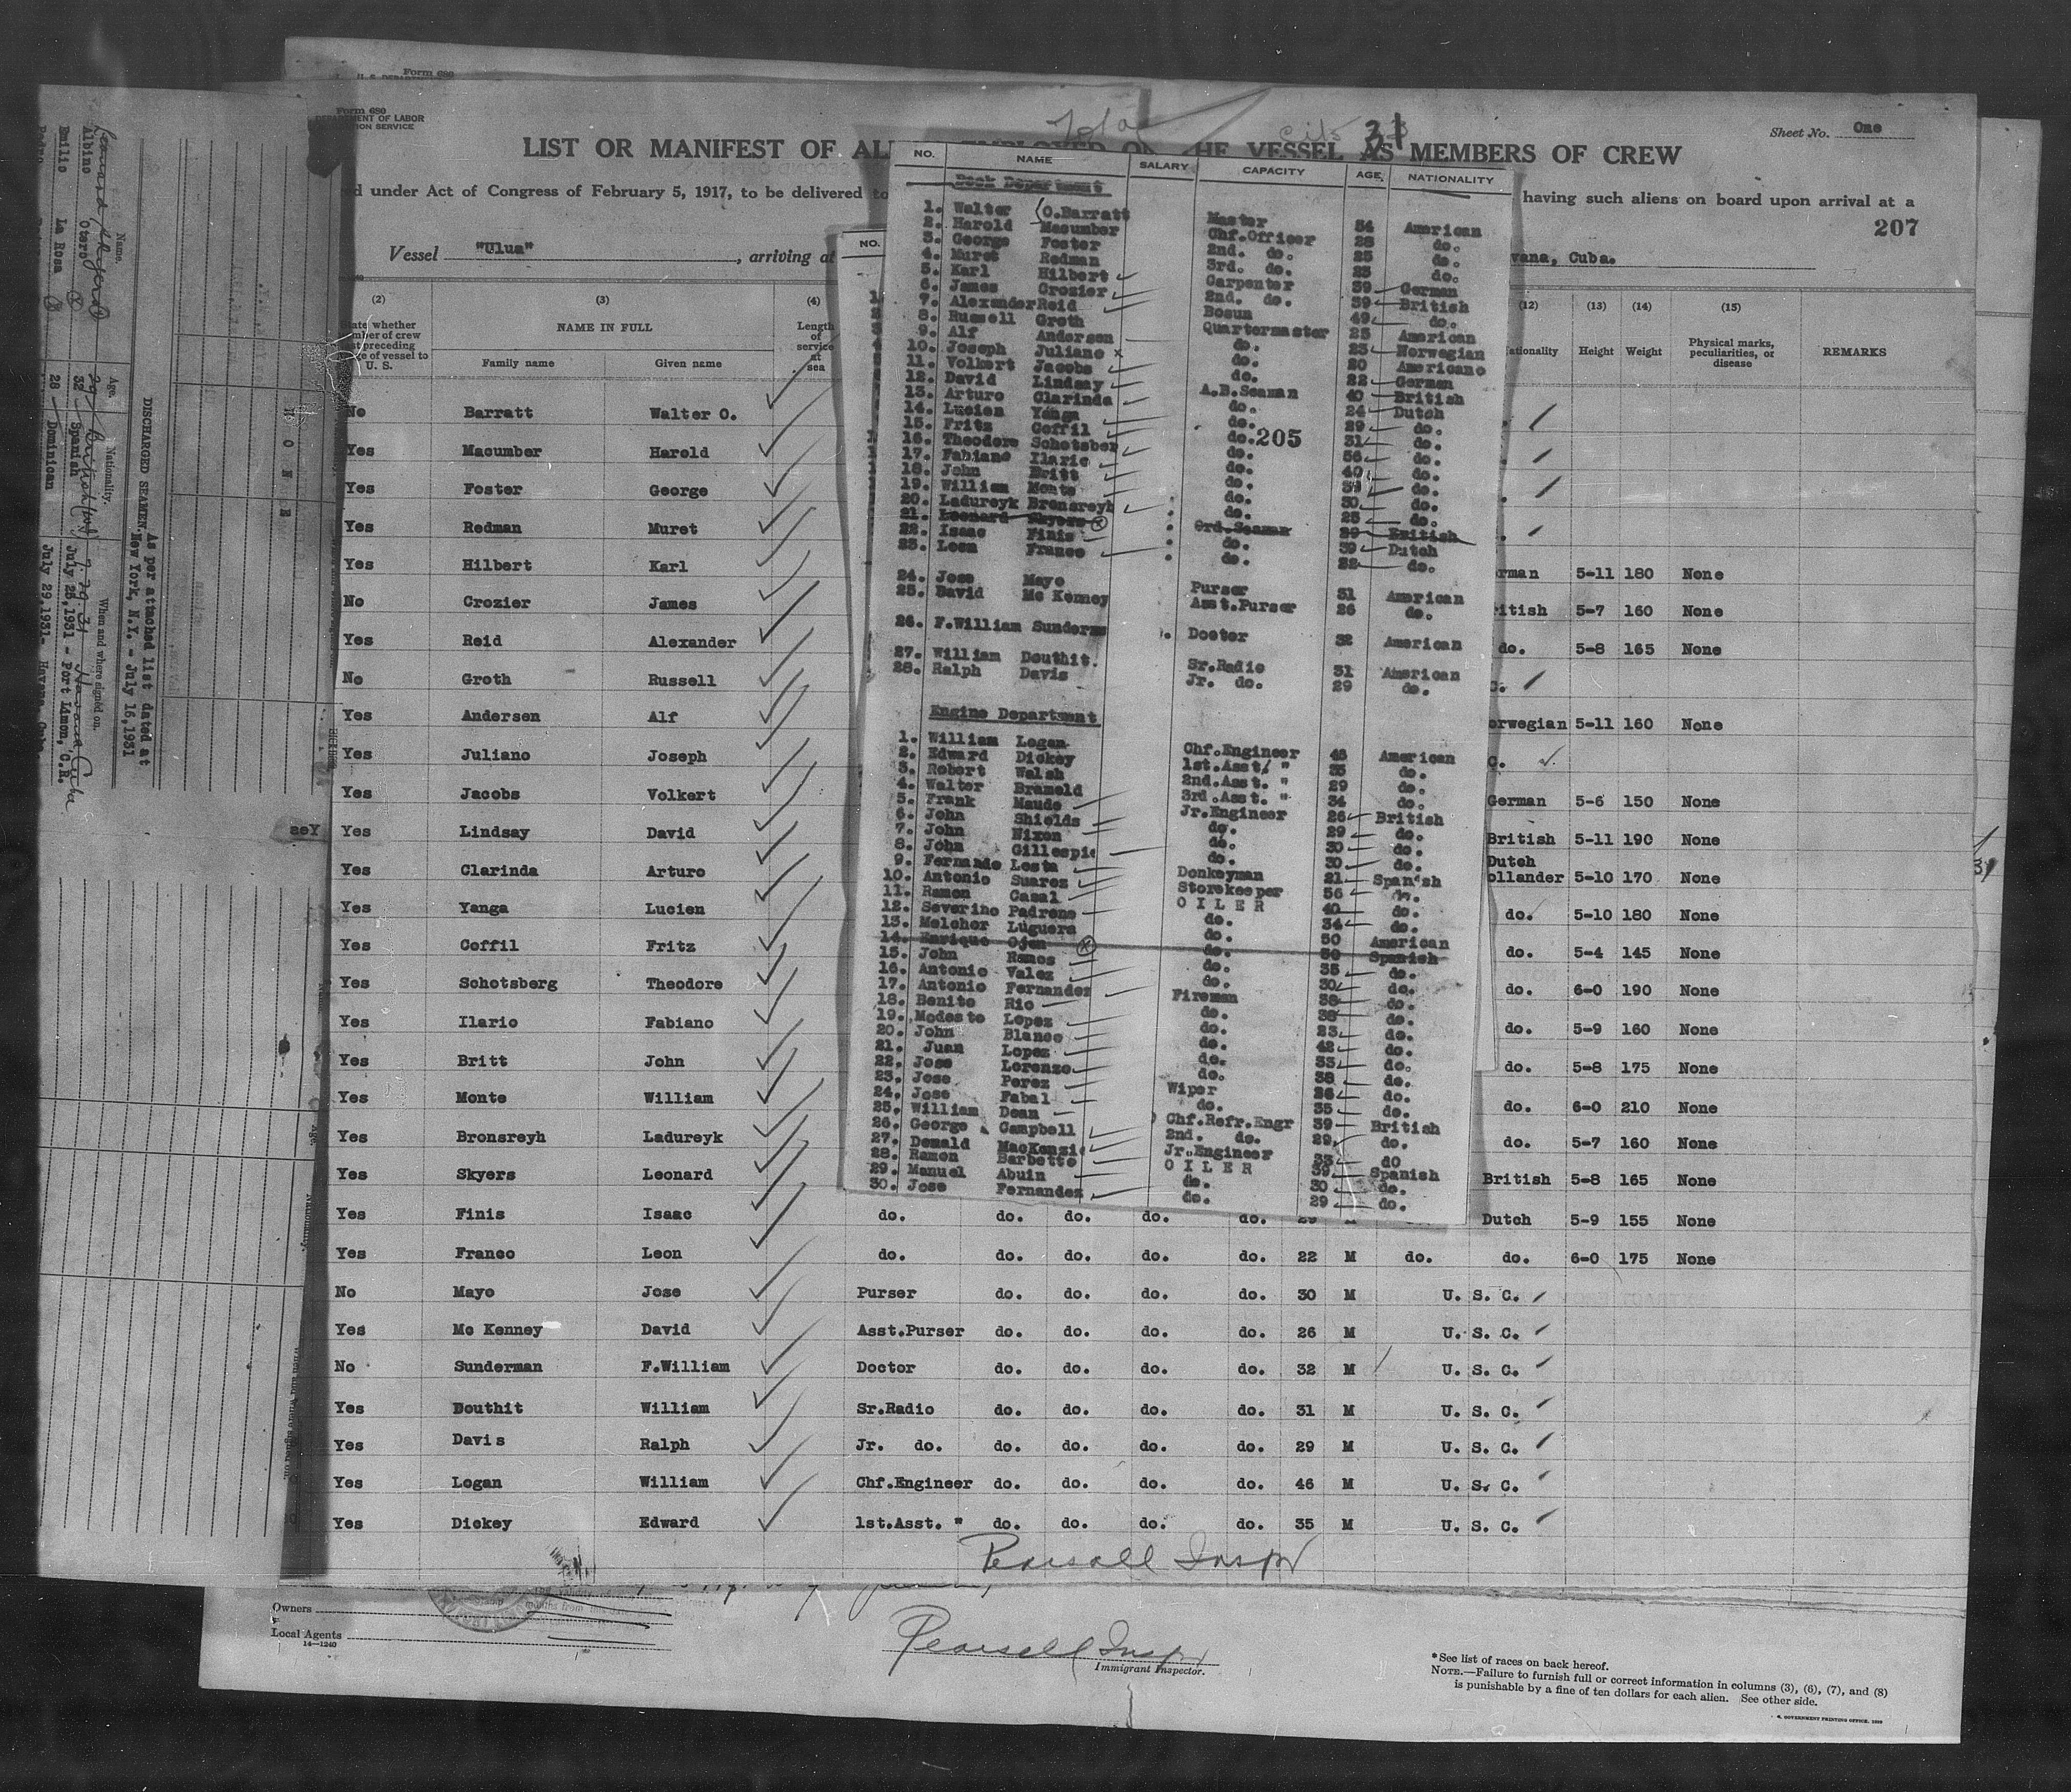 Form 680
Form 680
DEPARTMENT OF LABOR
Sheet No. One
31
LIST OR MANIFEST OF AL EMPLOYED ON THE VESSEL AS MEMBERS OF CREW
under Act of Congress of February 5, 1917, to be delivered to
having such aliens on board upon arrival at a
207
Vessel "Ulua", arriving at
Cuba.
(2) (3) (4) (12) (13) (14) (15)
NAME IN FULL
Family name Given name
Length of service at sea
Height Weight Physical marks, peculiarities, or disease REMARKS
No Barratt Walter O.
Yes Macumber Harold
Yes Foster George
Yes Redman Muret
Yes Hilbert Karl 5-11 180 None
No Crozier James 5-7 160 None
Yes Reid Alexander do. 5-8 165 None
No Groth Russell
Yes Andersen Alf 5-11 160 None
Yes Juliano Joseph
Yes Jacobs Volkert German 5-6 150 None
Yes Lindsay David British 5-11 190 None
Yes Clarinda Arturo Dutch 5-10 170 None
Yes Yanga Lucien do. 5-10 180 None
Yes Coffil Fritz do. 5-4 145 None
Yes Schotsberg Theodore do. 6-0 190 None
Yes Ilario Fabiano do. 5-9 160 None
Yes Britt John do. 5-8 175 None
Yes Monte William do. 6-0 210 None
Yes Bronsreyh Ladureyk do. 5-7 160 None
Yes Skyers Leonard British 5-8 165 None
Yes Finis Isaac do. do. do. do. do. 29 Dutch 5-9 155 None
Yes Franco Leon do. do. do. do. do. 22 M do. do. 6-0 175 None
No Mayo Jose Purser do. do. do. do. 30 M U. S. C.
Yes Mc Kenney David Asst.Purser do. do. do. do. 26 M U. S. C.
No Sunderman F.William Doctor do. do. do. do. 32 M U. S. C.
Yes Douthit William Sr.Radio do. do. do. do. 31 M U. S. C.
Yes Davis Ralph Jr. do. do. do. do. do. 29 M U. S. C.
Yes Logan William Chf.Engineer do. do. do. do. 46 M U. S. C.
Yes Dickey Edward 1st.Asst. " do. do. do. do. 35 M U. S. C.
Pearsall Inspr
NO. NAME SALARY CAPACITY AGE NATIONALITY
Deck Department
1. Walter O.Barratt Master 54 American
2. Harold Macumber Chf.Officer 28 do.
3. George Foster 2nd. do. 25 do.
4. Muret Redman 3rd. do. 25 do.
5. Karl Hilbert Carpenter 39 German
6. James Crozier 2nd. do. 39 British
7. Alexander Reid Bosun 49 do.
8. Russell Groth Quartermaster 25 American
9. Alf Andersen do. 25 Norwegian
10. Joseph Juliano do. 20 Americano
11. Volkert Jacobs do. 22 German
12. David Lindsay A.B.Seaman 40 British
13. Arturo Clarinda do. 24 Dutch
14. Lucien Yanga do. 29 do.
15. Fritz Coffil do. 31 do.
205
16. Theodore Schotsber do. 56 do.
17. Fabiano Ilario do. 40 do.
18. John Britt do. 39 do.
19. William Monte do. 30 do.
20. Ladureyk Bronsreyh do. 25 do.
21. Leonard Skyers Ord.Seaman 29 British
22. Isaac Finis do. 39 Dutch
23. Leon Franco do. 22 do.
24. Jose Mayo Purser 31 American
25. David Mc Kenney Asst.Purser 26 do.
26. F.William Sunderma Doctor 32 American
27. William Douthit. Sr.Radio 31 American
28. Ralph Davis Jr. do. 29 do.
Engine Department
1. William Logan Chf.Engineer 46 American
2. Edward Dickey 1st.Asst. " 35 do.
3. Robert Walsh 2nd.Asst. " 29 do.
4. Walter Brameld 3rd.Asst. " 34 do.
5. Frank Maude Jr.Engineer 26 British
6. John Shields do. 29 do.
7. John Nixon do. 30 do.
8. John Gillespie do. 30 do.
9. Fernando Lesta Donkeyman 21 Spanish
10. Antonio Suarez Storekeeper 56 do.
11. Ramon Casal OILER 40 do.
12. Severino Padrono do. 34 do.
13. Melchor Luguera do. 50 American
14. Enrique Ojen do. 30 Spanish
15. John Ramos do. 35 do.
16. Antonio Valez do. 30 do.
17. Antonio Fernandez Fireman 38 do.
18. Benito Rio do. 38 do.
19. Modesto Lopez do. 23 do.
20. John Blanco do. 42 do.
21. Juan Lopez do. 33 do.
22. Jose Lorenzo do. 38 do.
23. Jose Perez Wiper 26 do.
24. Jose Fabal do. 35 do.
25. William Dean Chf.Refr.Engr 39 British
26. George Campbell 2nd. do. 29 do.
27. Donald MacKenzie Jr.Engineer 33 do
28. Ramon Barbetto OILER 39 Spanish
29. Manuel Abuin do. 30 do.
30. Jose Fernandez do. 29 do.
Name. Age. Nationality. When and where signed on.
Albino Otero 32 Spanish July 25,1931 - Port Limon, C.R.
Emilio La Rosa 28 Dominican July 29,1931-
DISCHARGED SEAMEN. As per attached list dated at
New York, N.Y. - July 16,1931
NONE
Yes
Owners
Local Agents
14—1240
Pearsall Inspr
Immigrant Inspector.
*See list of races on back hereof.
NOTE.—Failure to furnish full or correct information in columns (3), (6), (7), and (8)
is punishable by a fine of ten dollars for each alien. See other side.
GOVERNMENT PRINTING OFFICE